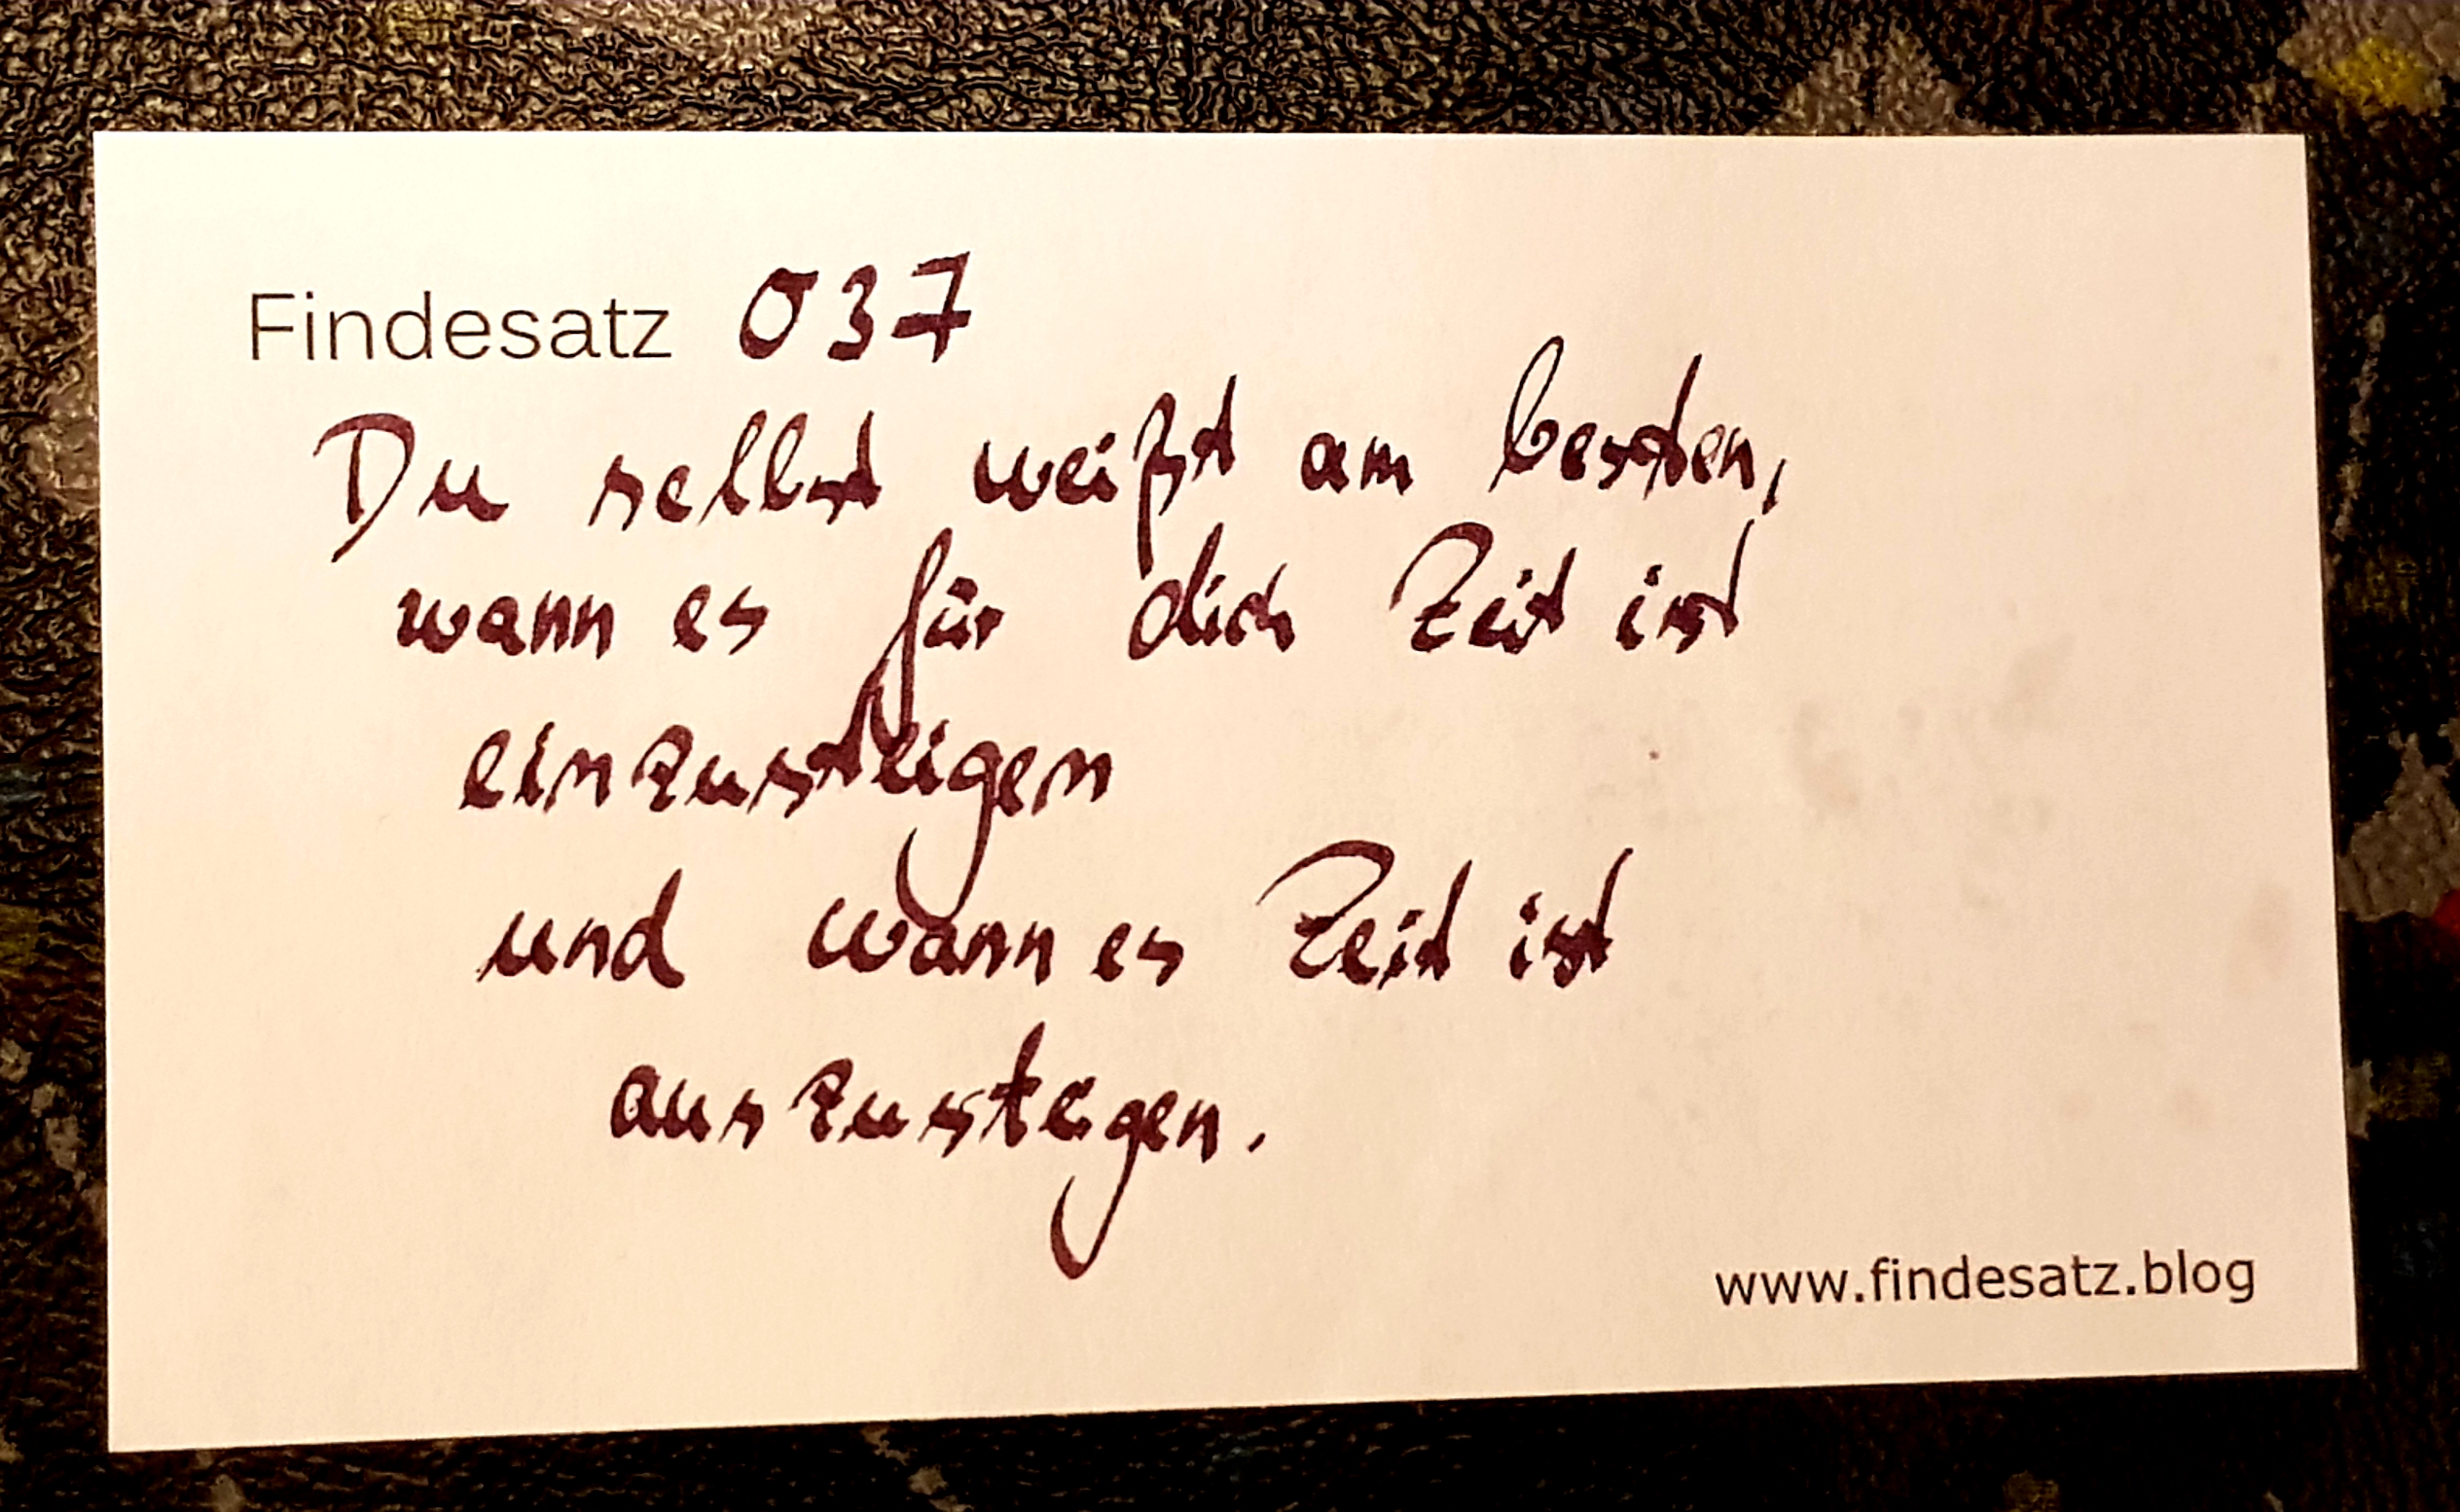 Findesatz 037
Du selbst weißt am besten,
wann es für dich Zeit ist
einzusteigen
und wann es Zeit ist
auszusteigen.
www.findesatz.blog